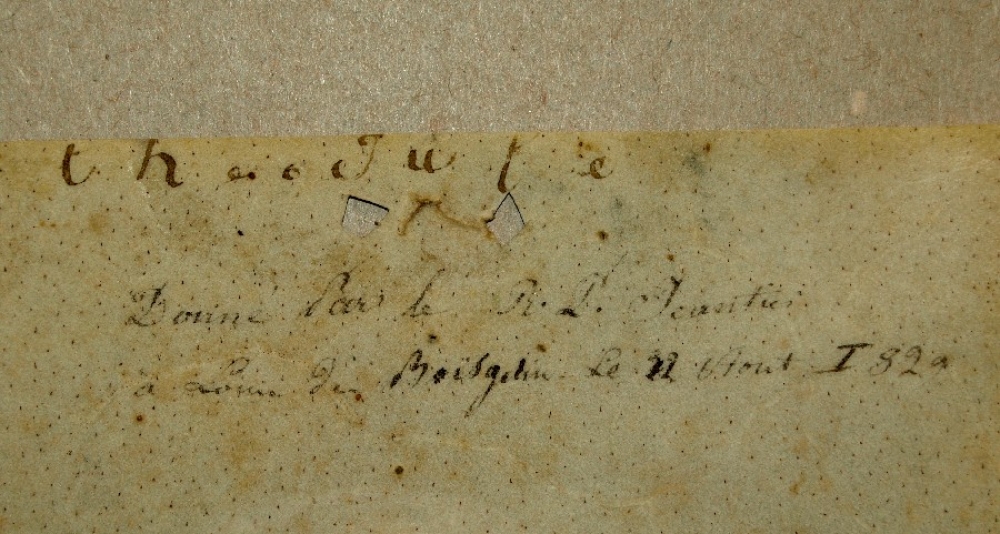 theodule
Donné Par le R. P. Jeantier
à Louis de Boisgelin Le 22 Aout 1829